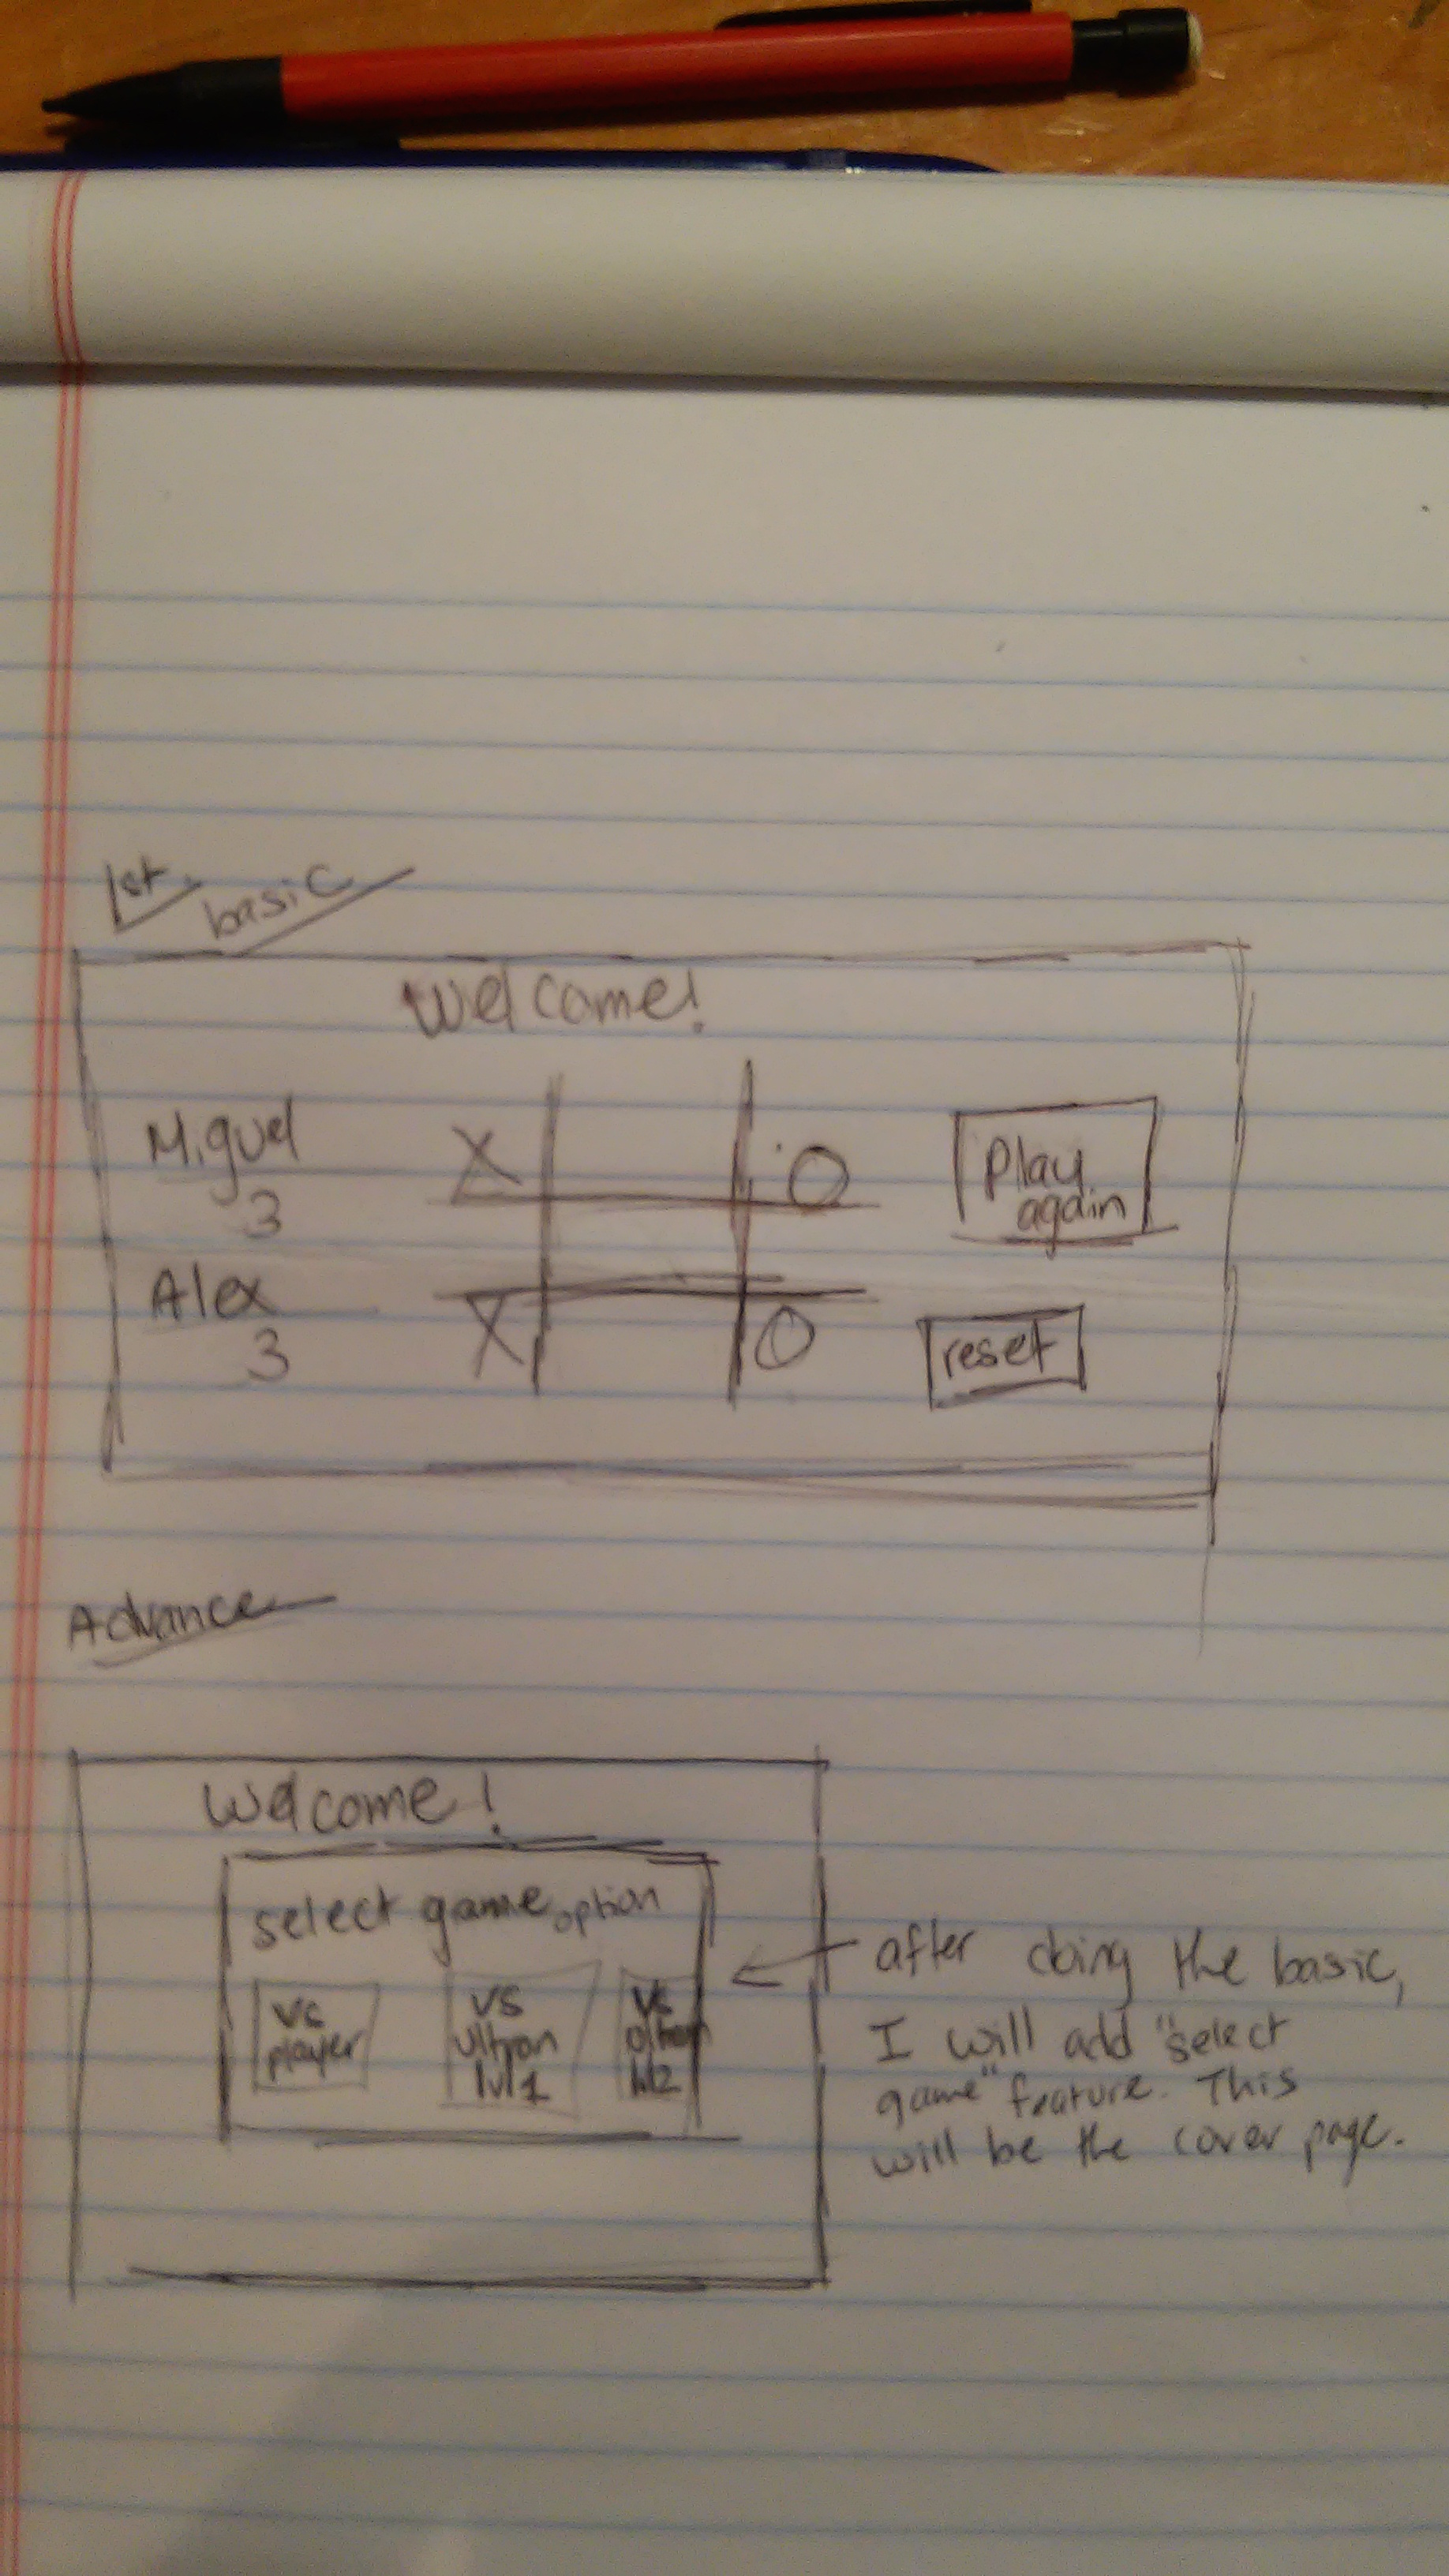 1st
basic
Welcome!
Miguel
3
X
O
Play
again
Alex
3
X
O
reset
Advance
Welcome!
select game option
vs
player
vs
ultron
lvl1
vs
ultron
lvl2
after doing the basic,
I will add "select
game" feature. This
will be the cover page.